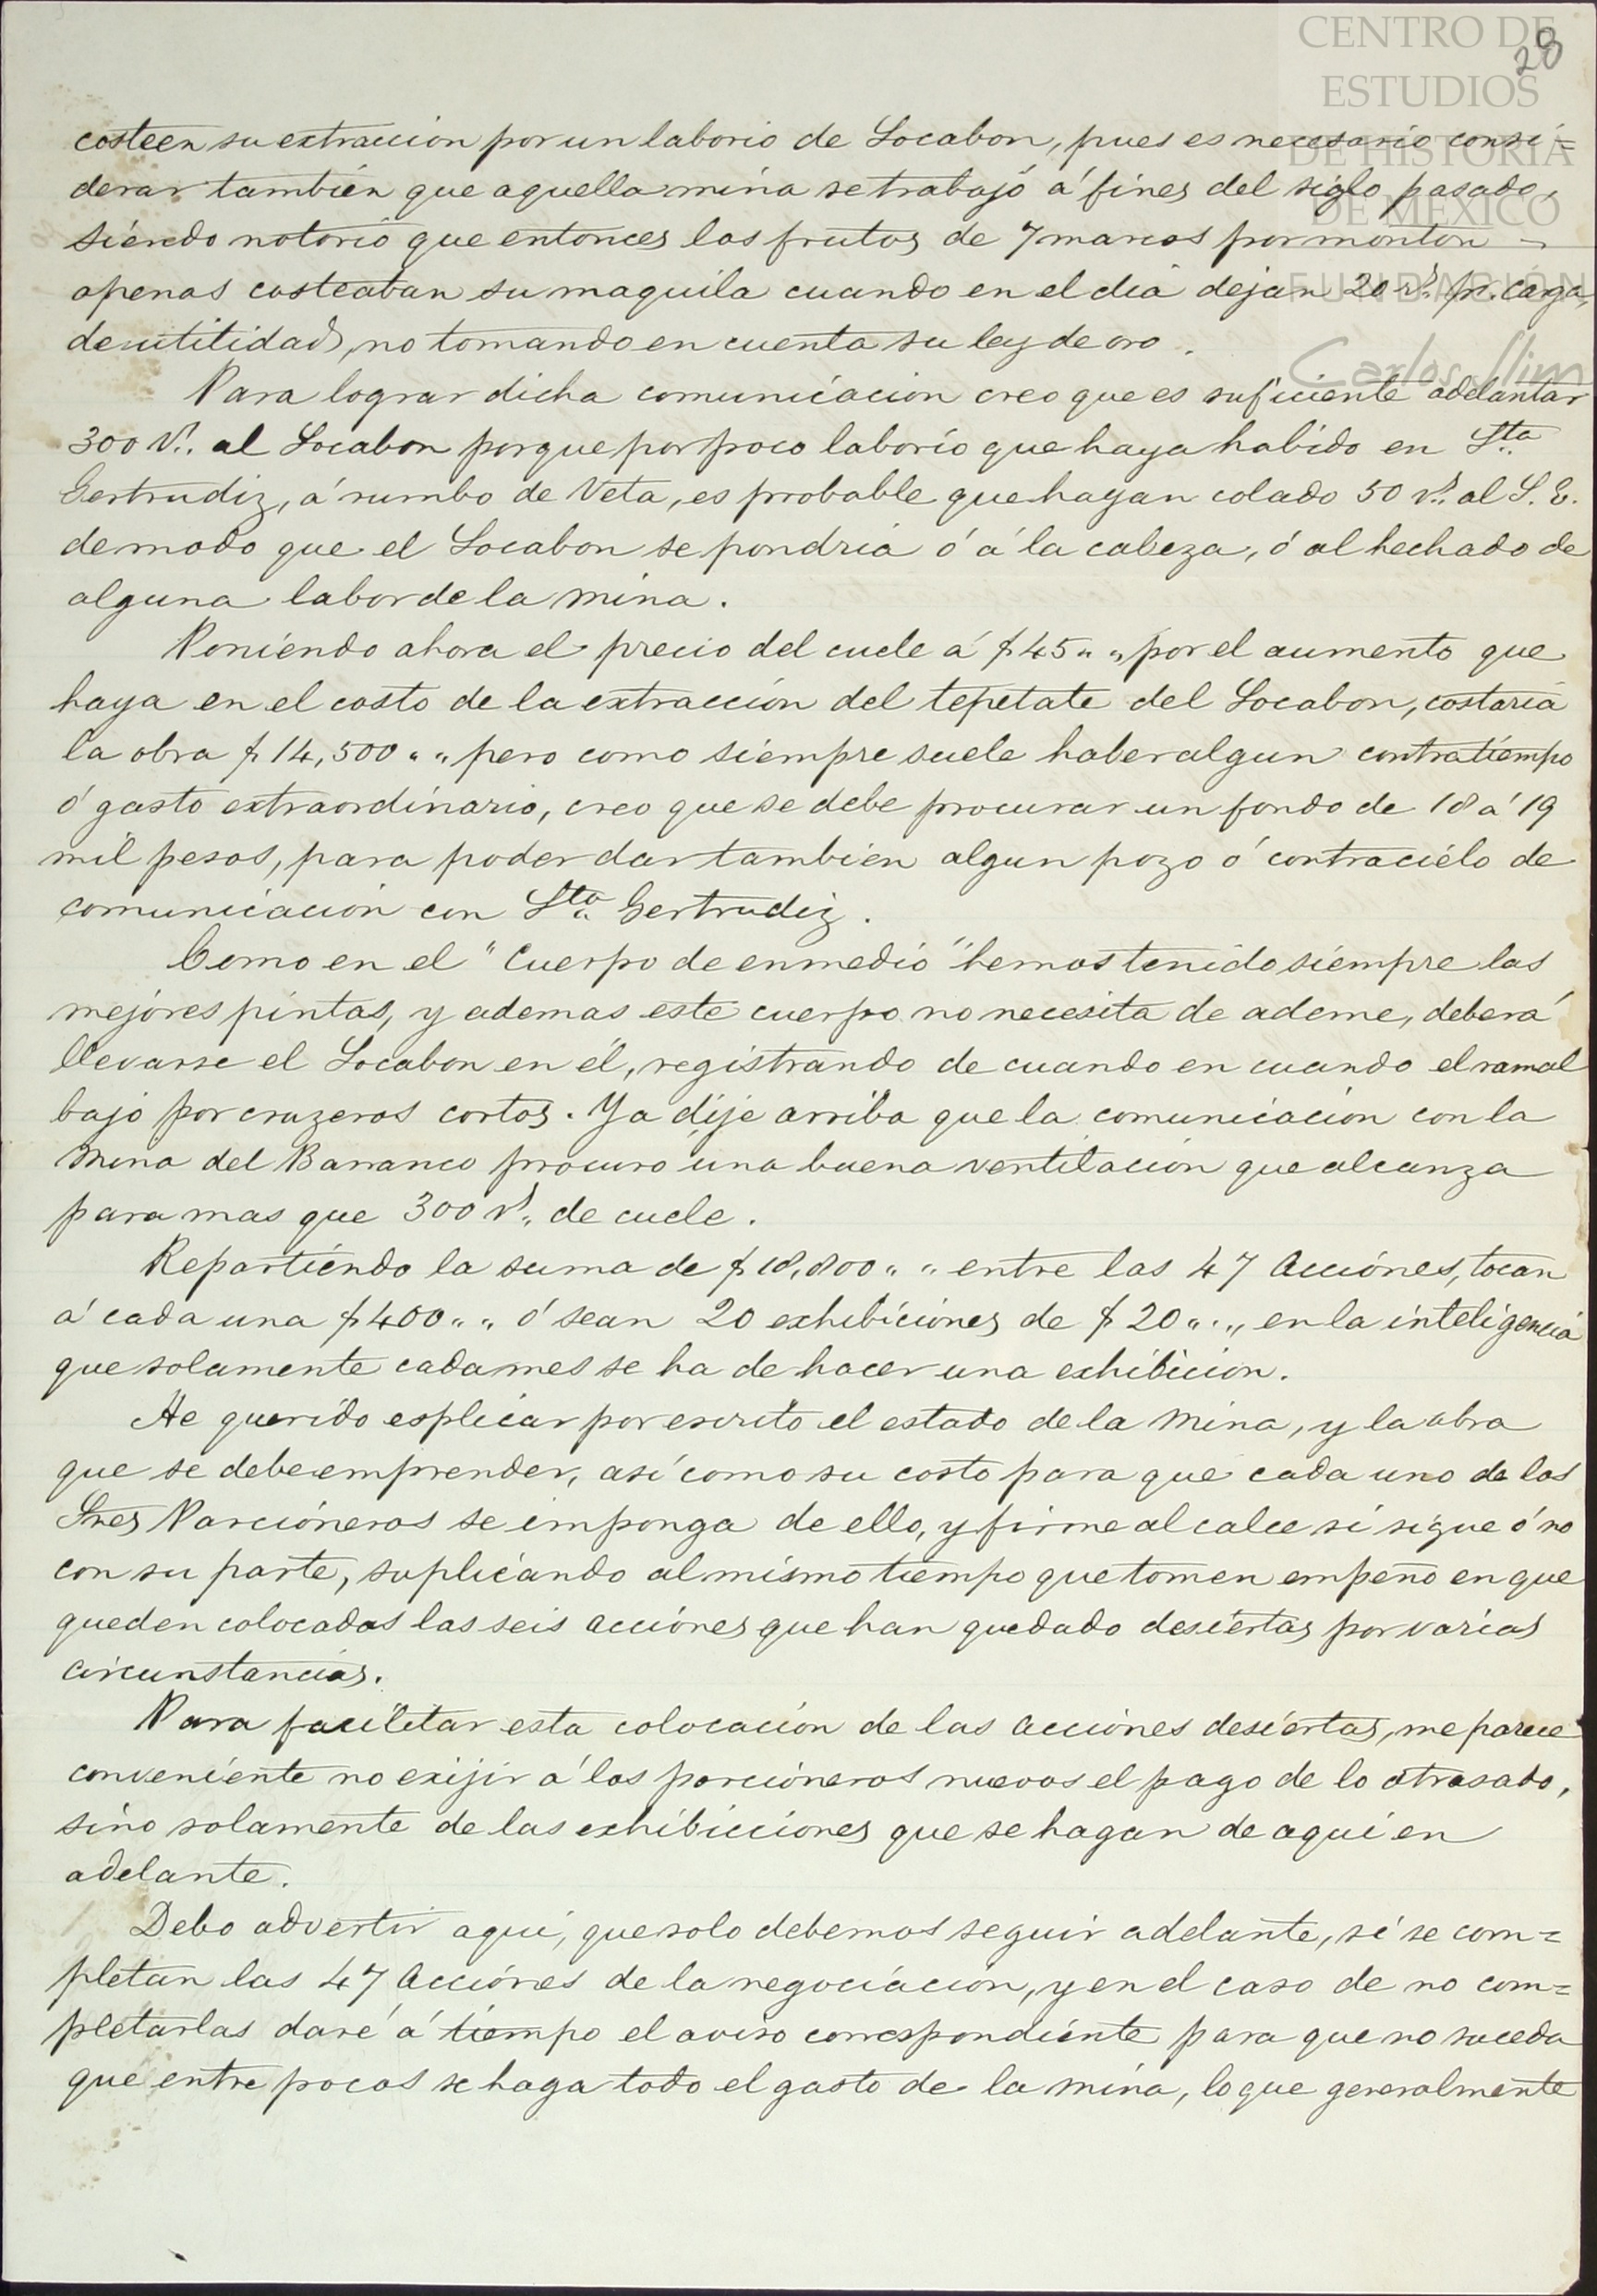 CENTRO DE
ESTUDIOS
DE HISTORIA
DE MÉXICO
FUNDACIÓN
Carlos Slim
28
costeen su extraccion por un laborio de Socabon, pues es necesario consi=
derar tambien que aquella mina se trabajó á fines del siglo pasado,
siendo notorio que entonces los frutos de 7 marcos por monton
apenas costeaban su maquila cuando en el dia dejan 20 p.s pr. carga,
de utilidad, no tomando en cuenta su ley de oro.
Para lograr dicha comunicacion creo que es suficiente adelantar
300 v.s al Socabon porque por poco laborio que haya habido en Sta
Gertrudiz, á rumbo de Veta, es probable que hayan colado 50 v.s al S. E.
de modo que el Socabon se pondria ó á la cabeza, ó al hechado de
alguna labor de la mina.
Poniendo ahora el precio del cuele á $45 " " por el aumento que
haya en el costo de la extracción del tepetate del Socabon, costaria
la obra $14,500 " " pero como siempre suele haber algun contratiempo
ó gasto extraordinario, creo que se debe procurar un fondo de 18 á 19
mil pesos, para poder dar tambien algun pozo ó contracielo de
comunicacion con Sta Gertrudiz.
Como en el "Cuerpo de enmedio" hemos tenido siempre las
mejores pintas, y ademas este cuerpo no necesita de ademe, deberá
llevarse el Socabon en él, registrando de cuando en cuando el ramal
bajo por cruzeros cortos. Ya dije arriba que la comunicacion con la
Mina del Barranco procuro una buena ventilacion que alcanza
para mas que 300 v.s de cuele.
Repartiendo la suma de $18,800 " " entre las 47 Acciones, tocan
á cada una $400 " " ó sean 20 exhibiciones de $20 " " en la inteligencia
que solamente cada mes se ha de hacer una exhibicion.
He querido esplicar por escrito el estado de la Mina, y la obra
que se debe emprender, así como su costo para que cada uno de los
Sres Parcioneros se imponga de ello, y firme al calce si sigue ó no
con su parte, suplicando al mismo tiempo que tomen empeño en que
queden colocadas las seis acciones que han quedado desiertas por varias
circunstancias.
Para facilitar esta colocacion de las acciones desiertas, me parece
conveniente no exijir á los parcioneros nuevos el pago de lo atrasado,
sino solamente de las exhibicciones que se hagan de aqui en
adelante.
Debo advertir aqui, que solo debemos seguir adelante, si se com=
pletan las 47 Acciones de la negociacion, y en el caso de no com=
pletarlas daré á tiempo el aviso correspondiente para que no suceda
que entre pocos se haga todo el gasto de la mina, lo que generalmente